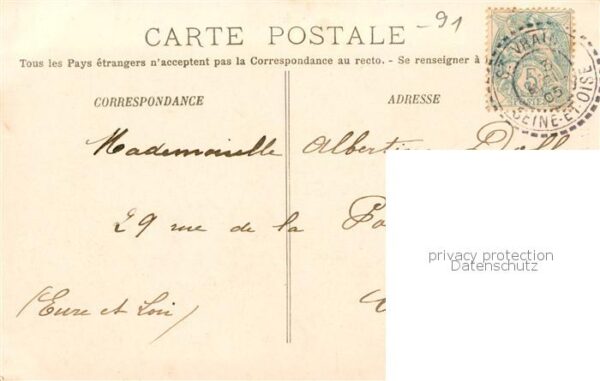 -91
CARTE POSTALE
Tous les Pays étrangers n'acceptent pas la Correspondance au recto. - Se renseigner à l
CORRESPONDANCE
ADRESSE
ST VRAIN
05
SEINE-ET-OISE
5
Mademoiselle Albertine
29 rue de la
(Eure et Loir)
privacy protection
Datenschutz